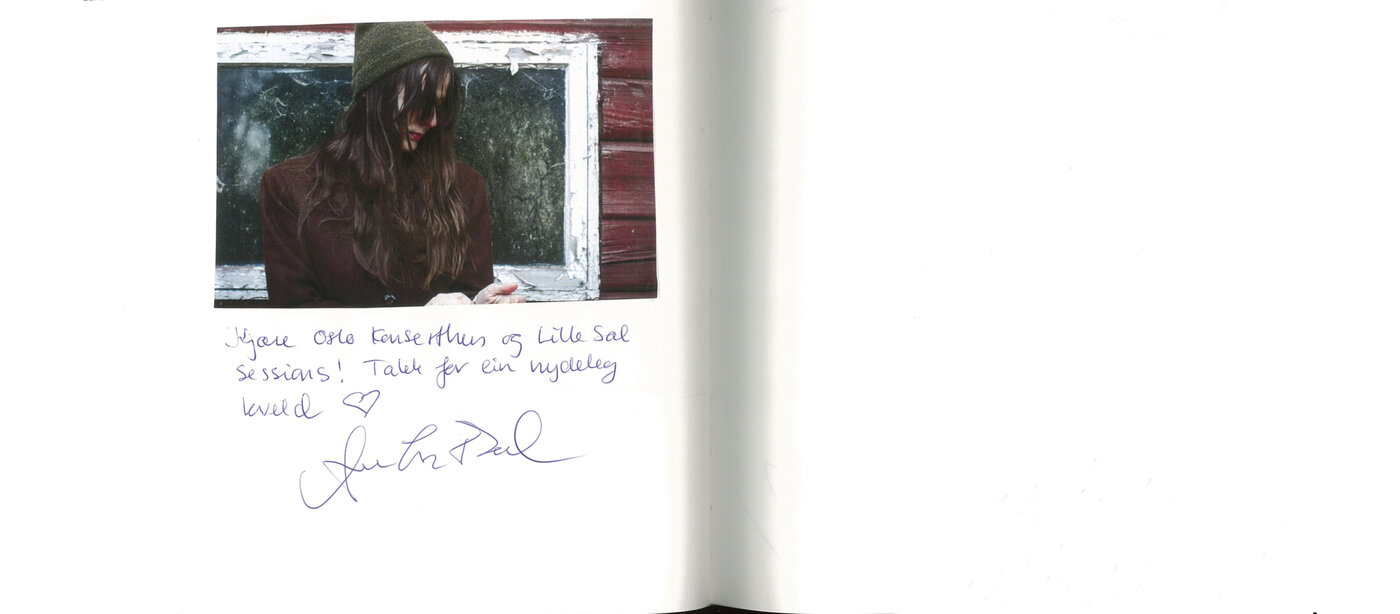 Kjære Oslo Konserthus og Lille Sal
Sessions! Takk for ein nydeleg
kveld